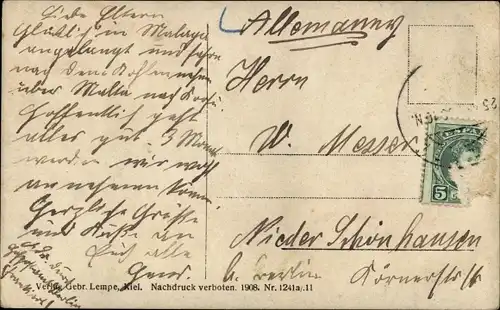 Liebe Eltern
Glücklich in Malaga
angelangt und fahren
nach dem Kohlennehmen
über Malta nach Korfu.
Hoffentlich geht
alles gut. 3 Monat
werden wir wohl
an nehmen können.
Herzliche Grüße
und Küsse an
Euch alle
Hans.
Allemaney
Herrn
W. Messer
Nieder Schönhausen
b. Berlin
Körnerstr
ESPAÑA
5
Verlag Gebr. Lempe, Kiel. Nachdruck verboten. 1908. Nr. 1241a/.11